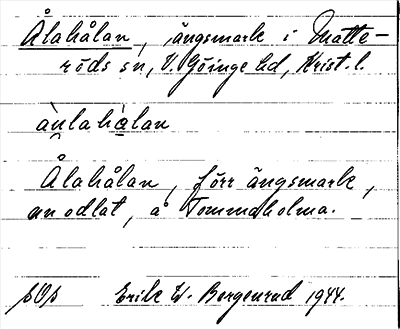 Ålahålan, ängsmark i Matte-
röds sn, V. Göinge hd, Krist. l.
Ålahålan, förr ängsmark,
nu odlat, å Tommaholma.
Erik W. Bergenrud 1944.